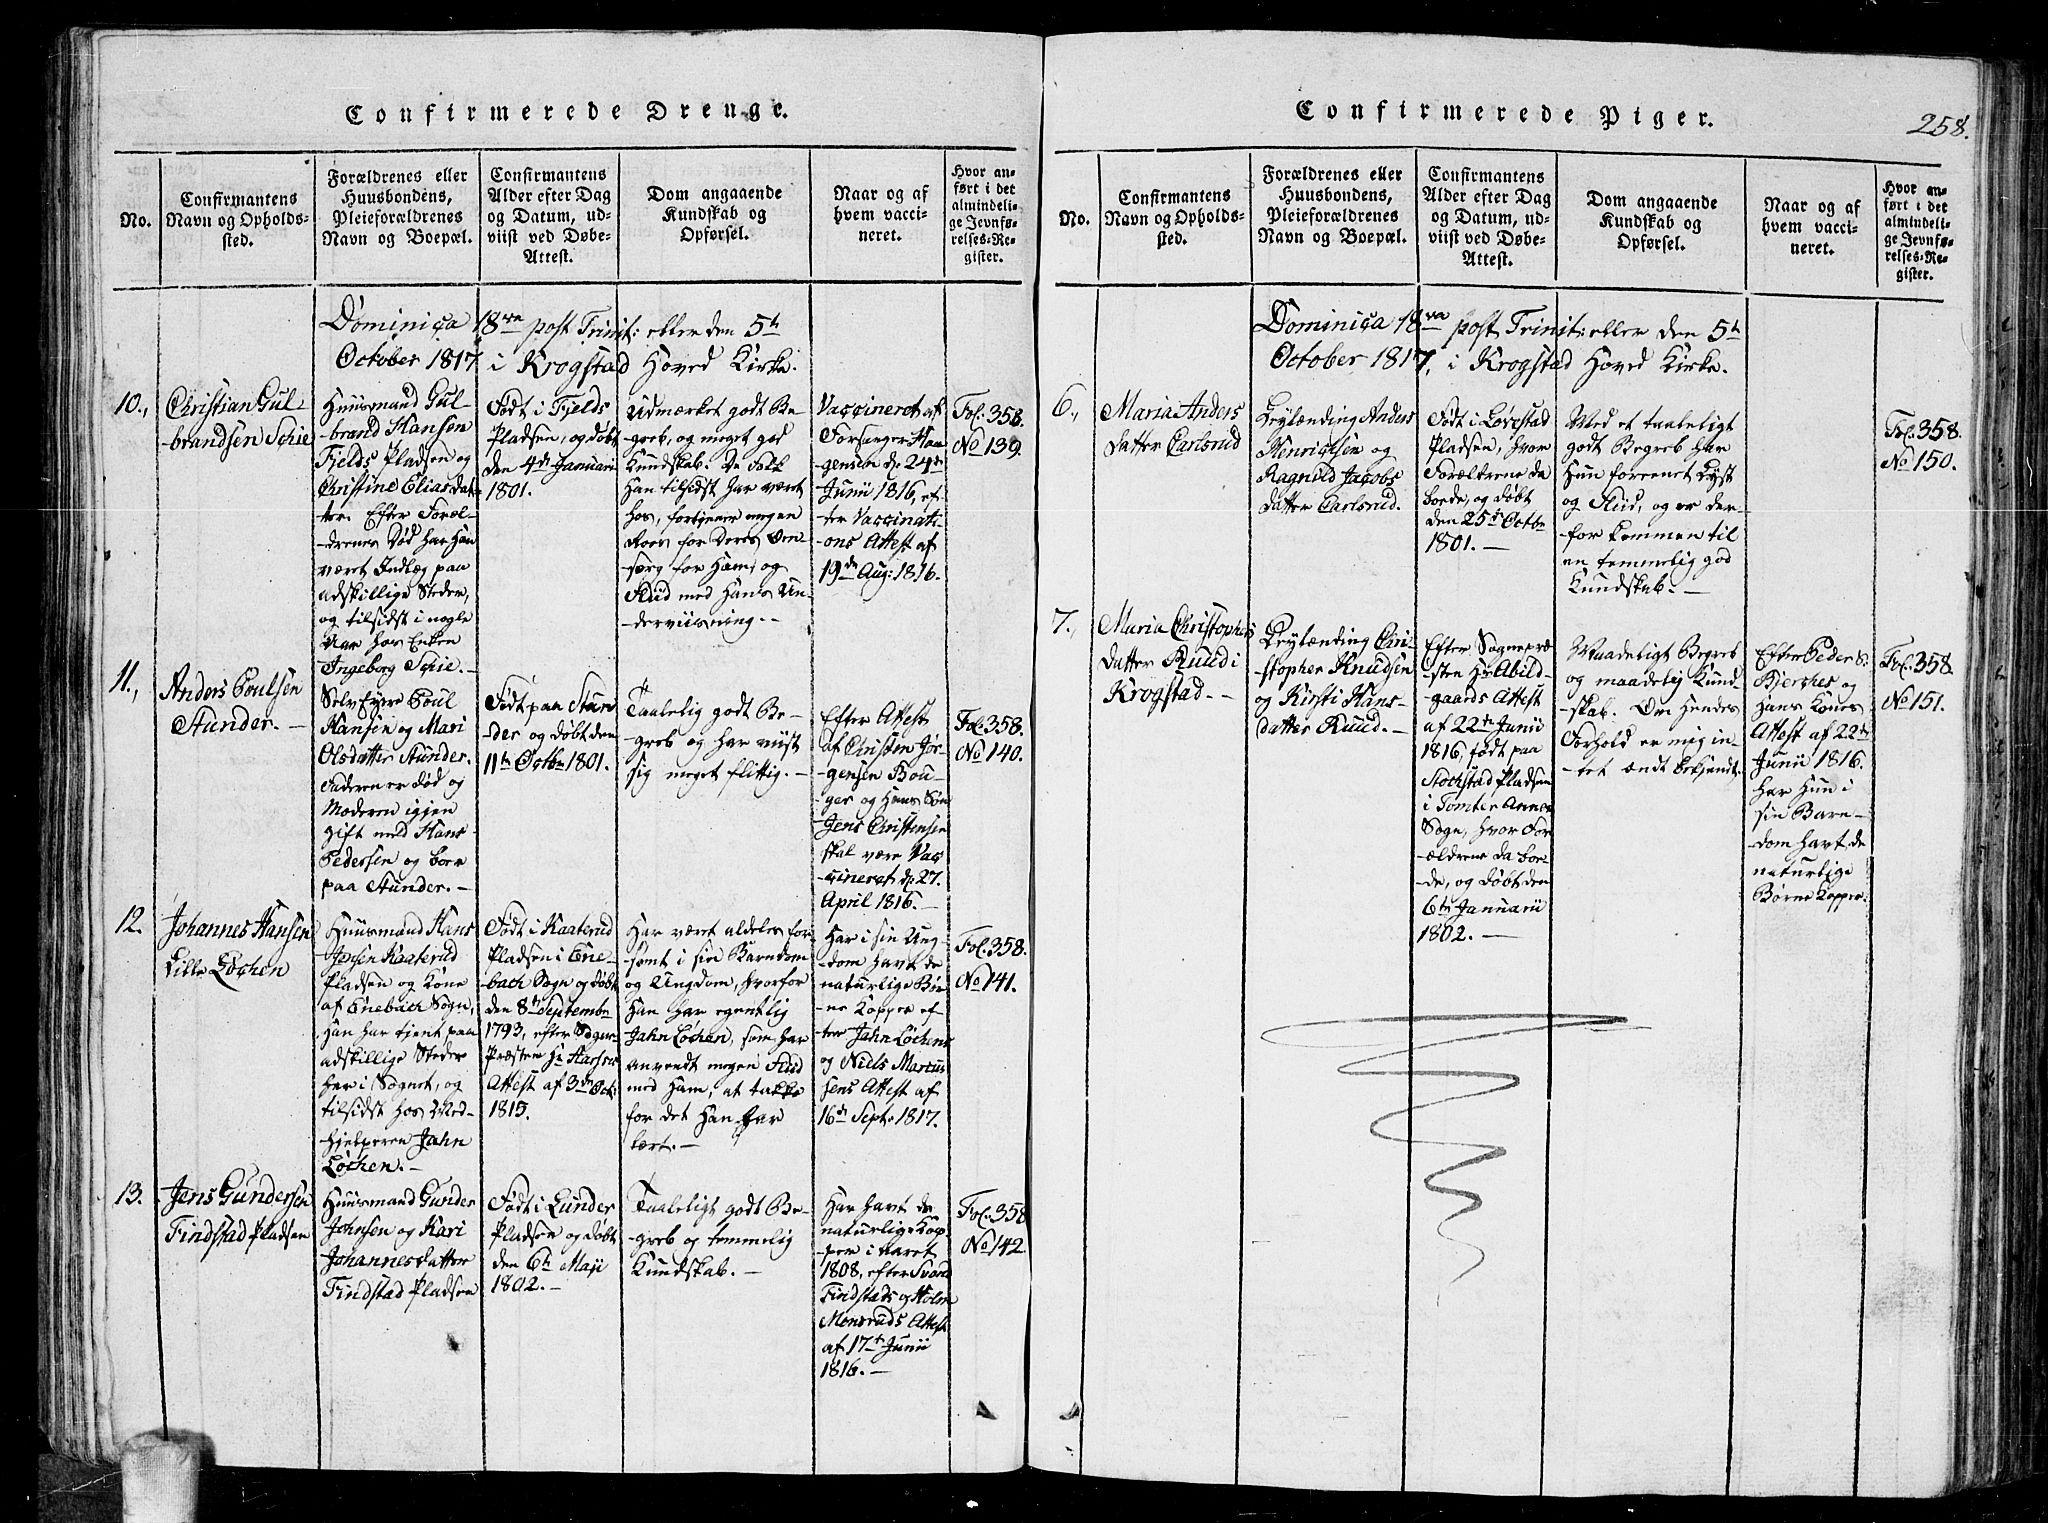 Confirmerede Drenge.
No.
Confirmantens
Navn og Opholds-
sted.
Forældrenes eller
Huusbondens,
Pleieforældrenes
Navn og Boepæl.
Confirmantens
Alder efter Dag
og Datum, ud-
viist ved Døbe-
Attest.
Dom angaaende
Kundskab og
Opførsel.
Naar og af
hvem vacci-
neret.
Hvor an-
ført i det
almindeli-
ge Jevnfø-
relses-Re-
gister.
Dominica 18va post Trinit: eller den 5te
October 1817 i Krogstad Hoved Kirke.
10.,
Christian Gul-
brandsen Schie
Huusmand Gul-
brand Hansen
Fjelds Pladsen og
Christine Eliasdat-
ter. Efter Foræl-
drenes Død har han
været Indlæg paa
adskillige Steder,
og tilsidst i nogle
Aar hos Enken
Ingeborg Schie.-
Født i Fjelds
Pladsen, og døbt
den 4de Januari
1801.
Udmærket godt Be-
greb, og meget god
Kundskab. De Folk
Han tilsidst har været
hos, fortjener megen
Roes for Deres Om-
sorg for Ham, og
Flid med Hans Un-
derviisning.-
Vaccineret af
Forsanger Haa-
gensen d: 24de
Junii 1816, ef-
ter Vaccinati-
ons Attest af
19de Aug: 1816.
Fol: 358.
No 139.
11.,
Anders Poulsen
Stunder.-
Selv Eyer Poul
Hansen og Mari
Olsdatter Stunder.
Faderen er død og
Moderen igjen
gift med Hans
Pedersen og boer
paa Stunder.-
Født paa Stun-
der og døbt den
11te Octbr 1801.
Taalelig godt Be-
greb og har viist
sig meget flittig.-
Efter Attest
af Christen Jør-
gensen Bou-
ger og Hans Søn
Jens Christensen
skal være Vac-
cineret d: 27.
April 1816.-
Fol: 358.
No 140.
12.
Johannes Hansen
Lille Løchen
Huusmand Hans
Jensen Kaaterud
Pladsen og Kone
af Enebach Sogn,
han har tjent paa
adskillige Steder
her i Sognet, og
tilsidst hos Med-
hjelperen Jahn
Løchen.-
Født i Kaaterud
Pladsen i Ene-
bach Sogn og døbt
den 8de Septembr
1793, efter Sogne-
Præsten Hr
Attest af 3die Oct:
1815.
Har været aldeles for-
sømt i sin Barndom
og Ungdom, hvorfor
Han har egentlig
Jahn Løchen, som har
anvendt megen Flid
med Ham, at takke
for det Han har
lært.-
Har i sin Ung-
dom havt de
naturlige Bør-
ne Kopper ef-
ter Jahn Løchens
og Niels Marcus-
sens Attest af
16de Sept: 1817.
Fol: 358.
No 141.
13.
Jens Gundersen
Findstad Pladsen
Huusmand Gunder
Johnsen og Kari
Johannesdatter
Findstad Pladsen
Født i Lunder
Pladsen og døbt
den 6te Maji
1802.-
Taaleligt godt Be-
greb og temmelig
Kundskab.-
Har havt de
naturlige Kop-
per i Aaret
1808, efter Svend
Findstads og Holm
Monsruds Attest
af 17de Junii
1816.-
Fol: 358
No 142.
Confirmerede Piger.
258.
No.
Confirmantens
Navn og Opholds-
sted.
Forældrenes eller
Huusbondens,
Pleieforældrenes
Navn og Boepæl.
Confirmantens
Alder efter Dag
og Datum, ud-
viist ved Døbe-
Attest.
Dom angaaende
Kundskab og
Opførsel.
Naar og af
hvem vacci-
neret.
Hvor an-
ført i det
almindeli-
ge Jevnfø-
relses-Re-
gister.
Dominica 18va post Trinit: eller den 5te
October 1817, i Krogstad Hoved Kirke.
6.,
Maria Anders
datter Carlsrud
Leylænding Anders
Henrichsen og
Ragnild Jacobs
datter Carlsrud.
Født i Lørestad
Pladsen, hvor
Forældrene da
boede, og døbt
den 25de Octbr
1801.-
Med et taaleligt
godt Begreb har
Hun foreenet Lyst
og Flid, og er der-
for kommen til
en temmelig god
Kundskab.-
Fol: 358.
No 150.
7.,
Maria Christophers
datter Ruud i
Krogstad.-
Leylænding Chri-
stopher Knudsen
og Kirsti Hans-
datter Ruud.-
Efter Sognepræ-
sten Hr Abild-
gaards Attest
af 22de Junii
1816, født paa
Stochstad Pladsen
i Tomter Annex
Sogn, hvor For-
ældrene da boe-
de, og døbt den
6te Januarii
1802.-
Maadeligt Begreb
og maadelig Kund-
skab. Om Hendes
Forhold er mig in-
tet ondt bekjendt.
Efter Peder S:
Bjerches og
Hans Kones
Attest af 22de
Junii 1816.
har Hun i
sin Barn-
dom havt de
naturlige
Børne Kopper.
Fol: 358
No 151.